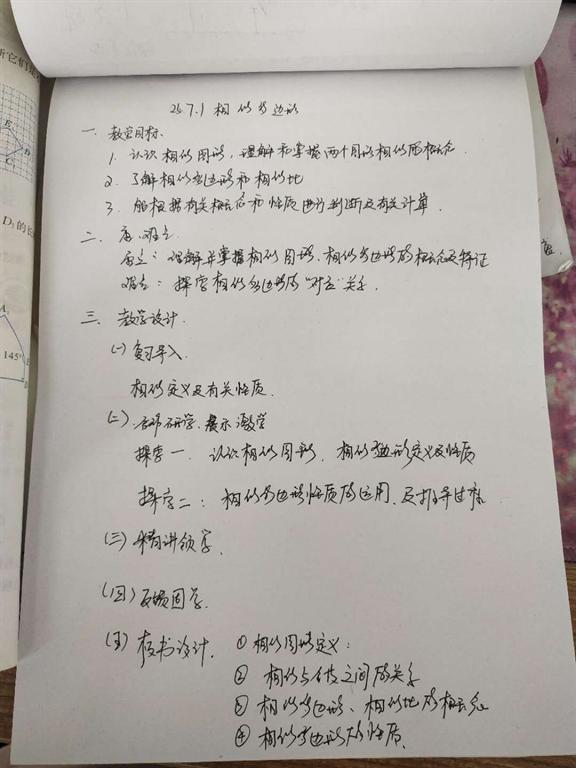 25.7.1 相似多边形
一. 教学目标.
1. 认识相似图形, 理解和掌握两个图形相似的概念.
2. 了解相似多边形和相似比
3. 能根据有关概念和性质进行判断及有关计算.
二. 重、难点.
重点: 理解并掌握相似图形、相似多边形的概念及特征
难点: 探究相似多边形的“对应”关系.
三. 教学设计.
(一) 复习导入.
相似定义及有关性质.
(二) 研学、展示激学
探究一. 认识相似图形, 相似多边形定义及性质
探究二: 相似多边形性质的运用及推导过程.
(三) 精讲领学.
(四) 反馈固学.
(五) 板书设计. ① 相似图形定义:
② 相似与全等之间的关系
③ 相似多边形、相似比的概念
④ 相似多边形的性质.
D₁的长
145°